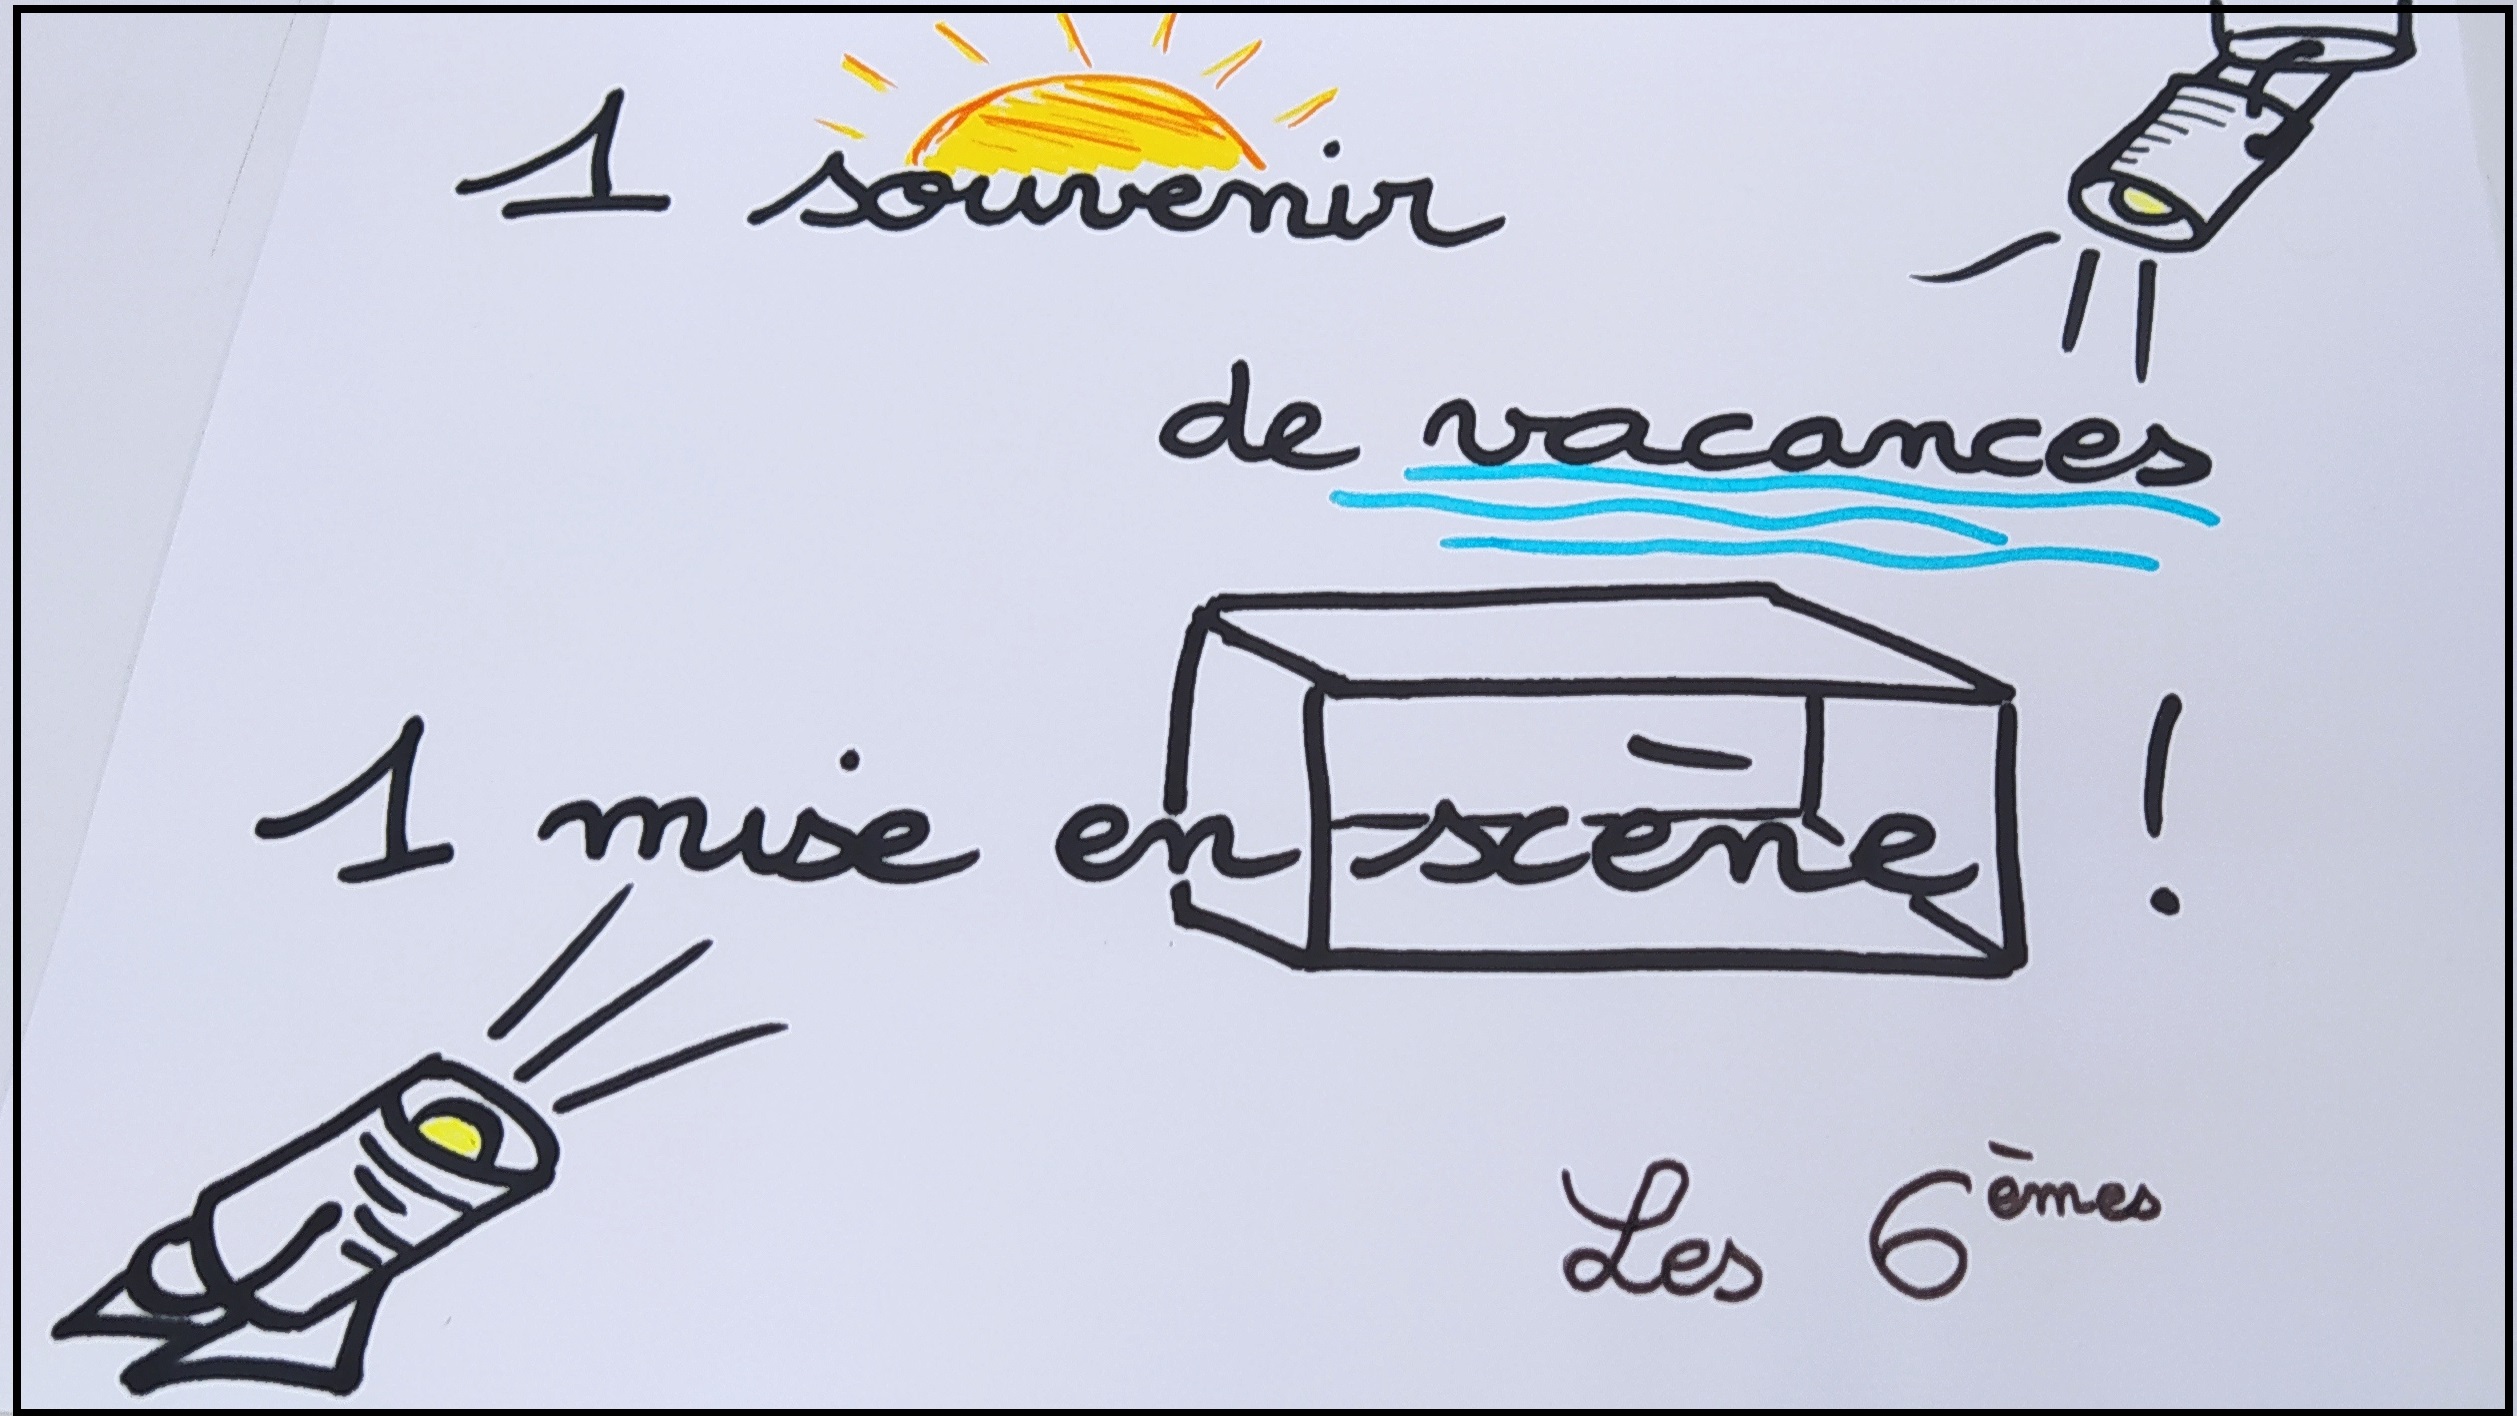 1 souvenir
de vacances
1 mise en scène !
Les 6èmes